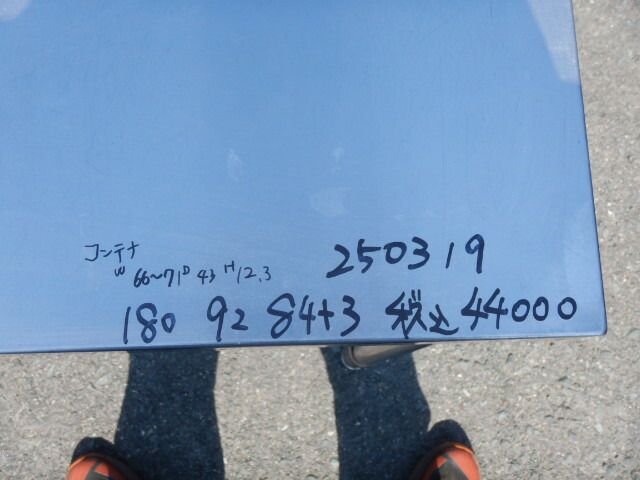 コンテナ
W 66~71 D 43 H 12.3
250319
180 92 84+3 税込44000